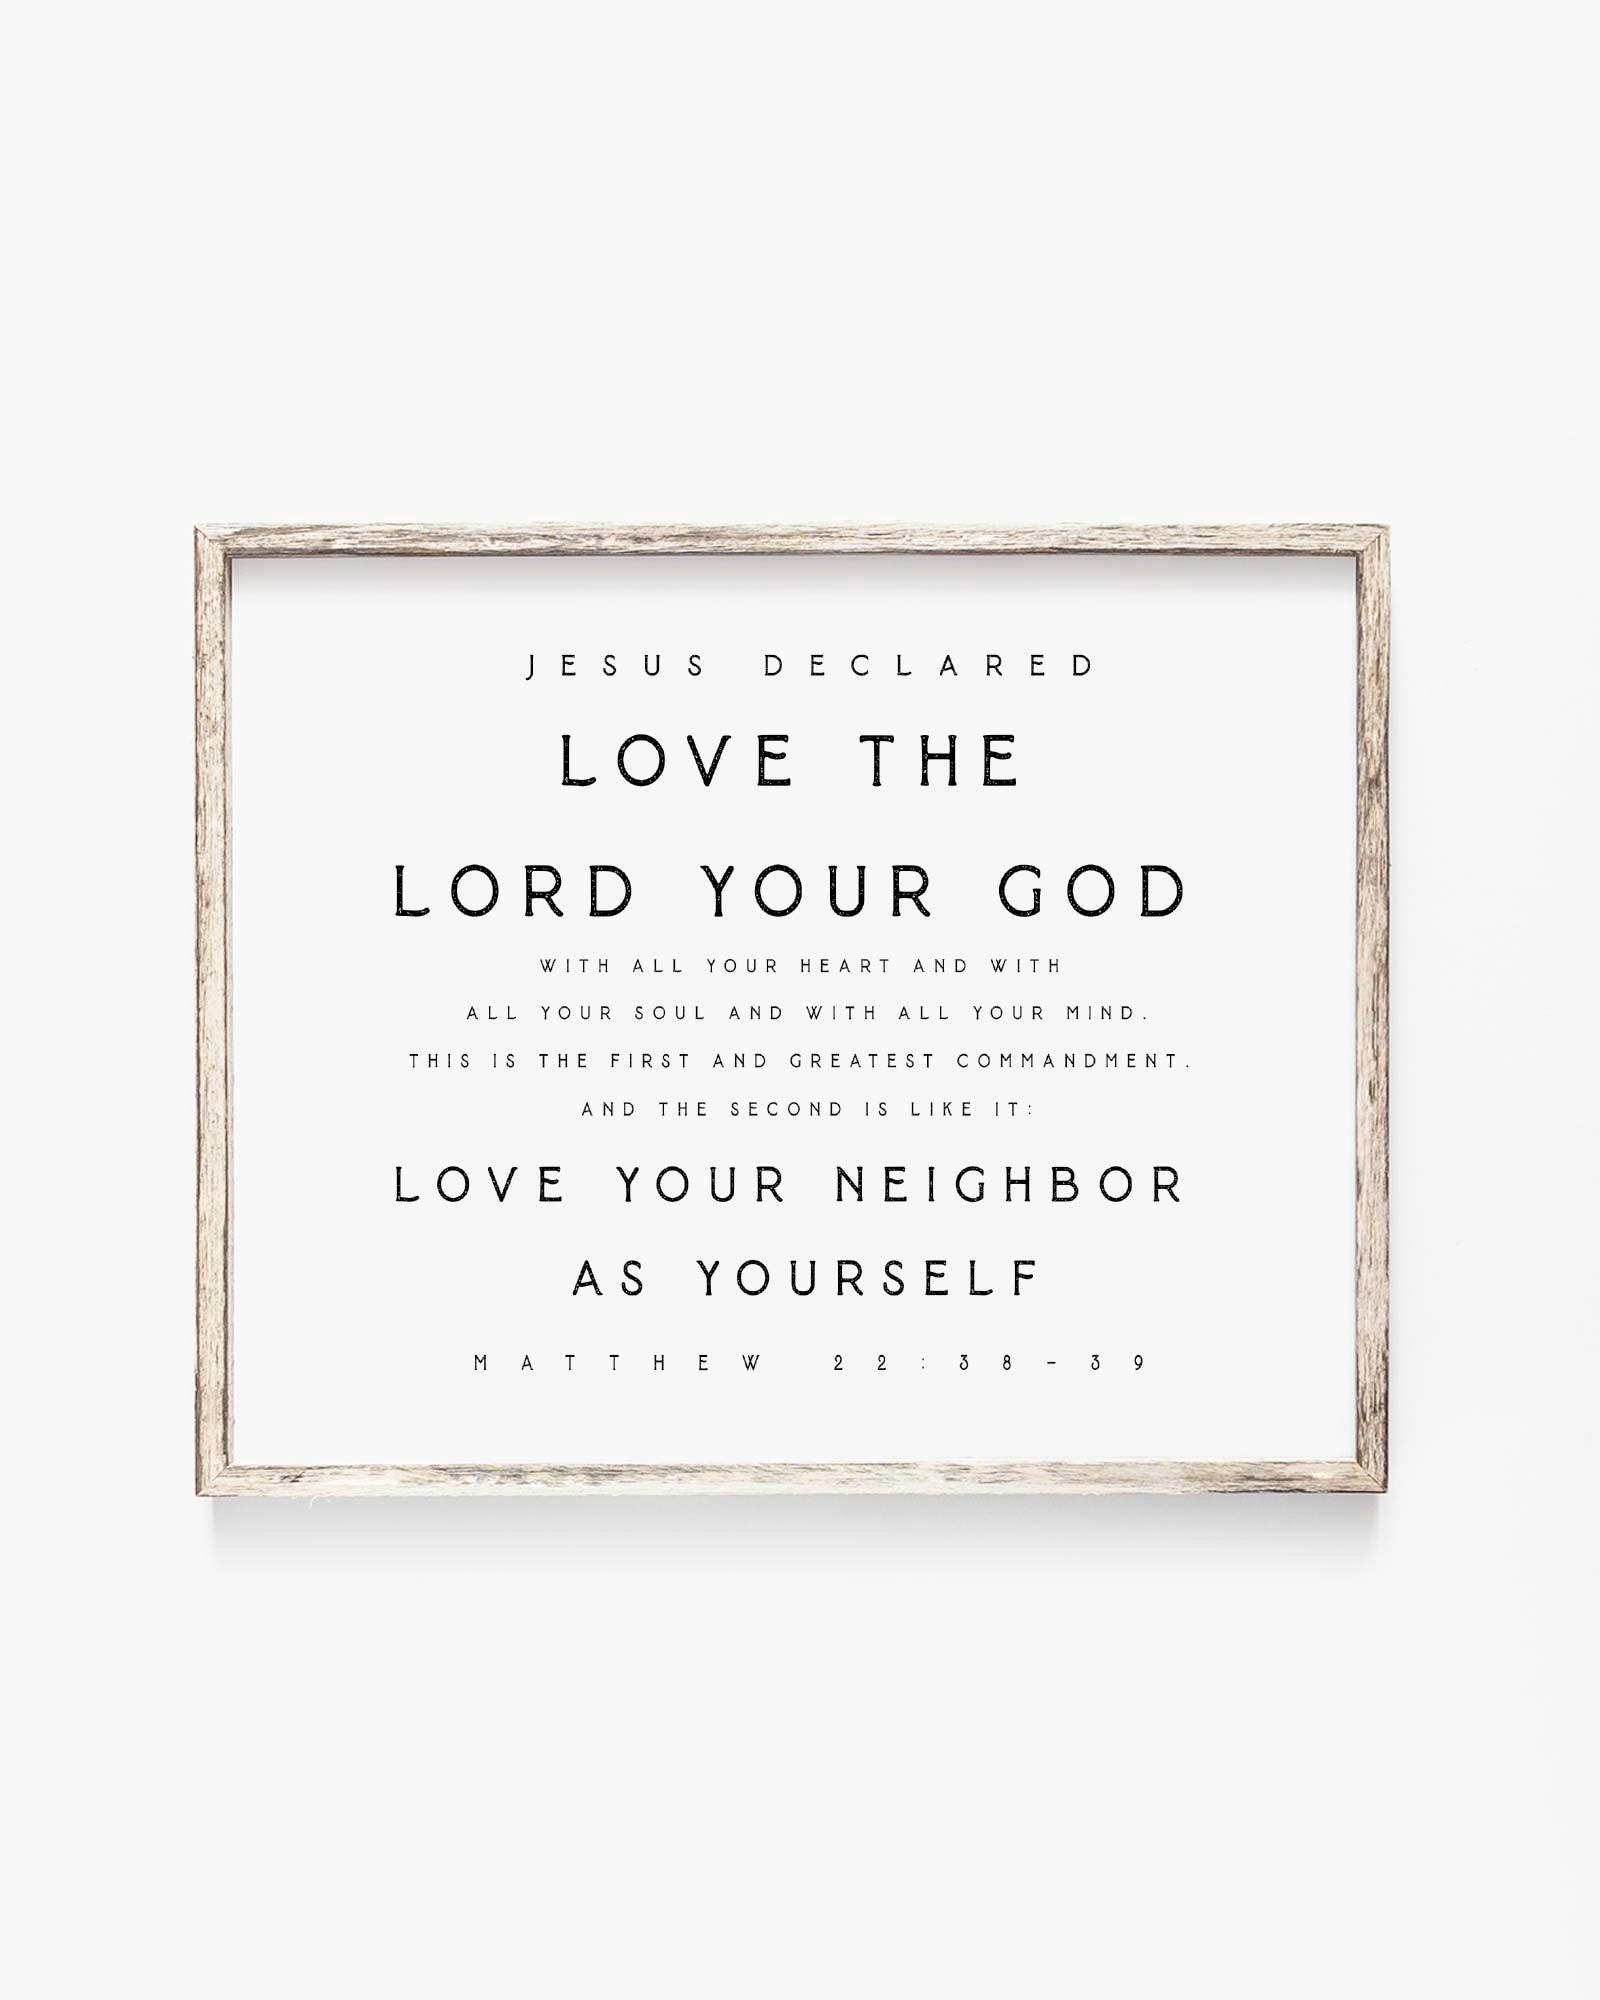 JESUS DECLARED
LOVE THE
LORD YOUR GOD
WITH ALL YOUR HEART AND WITH
ALL YOUR SOUL AND WITH ALL YOUR MIND.
THIS IS THE FIRST AND GREATEST COMMANDMENT.
AND THE SECOND IS LIKE IT:
LOVE YOUR NEIGHBOR
AS YOURSELF
MATTHEW 22:38-39